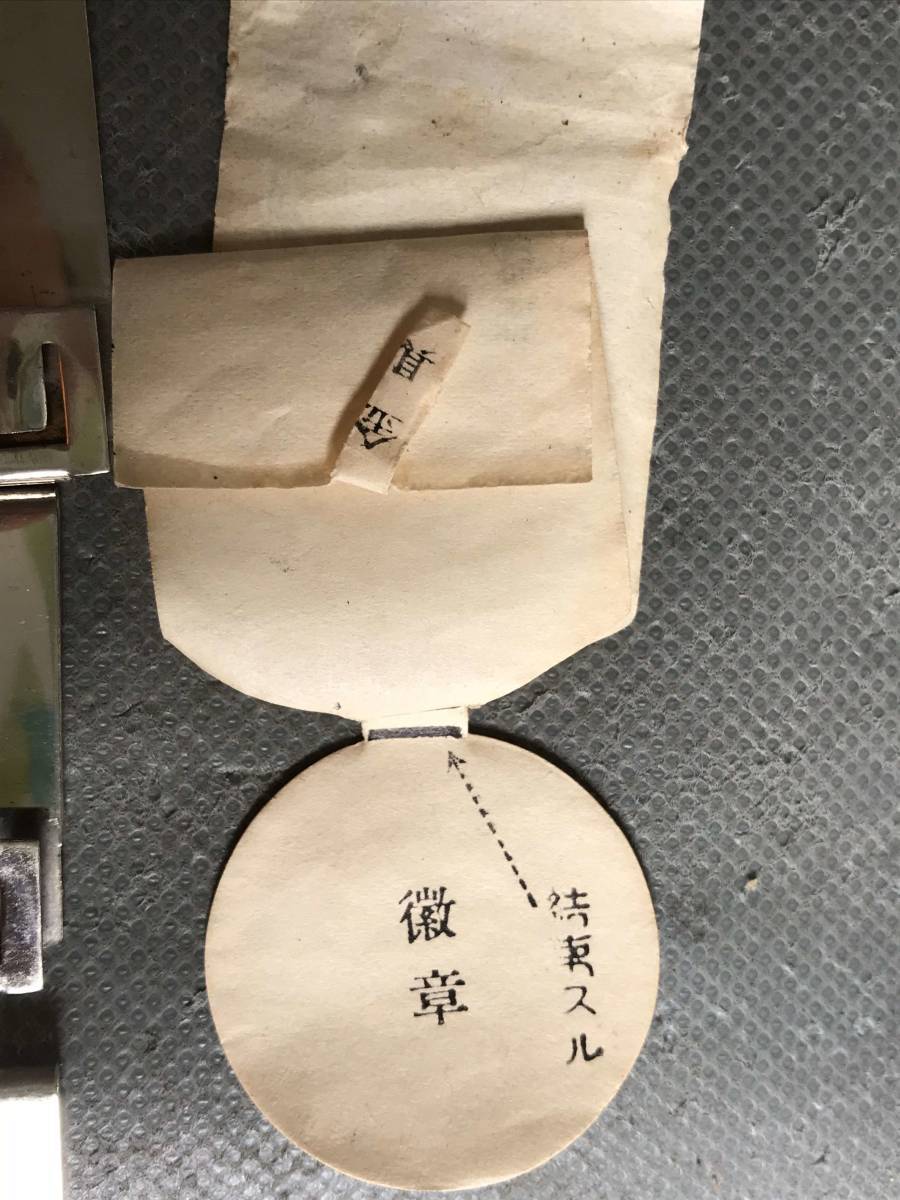 結束スル
徽章